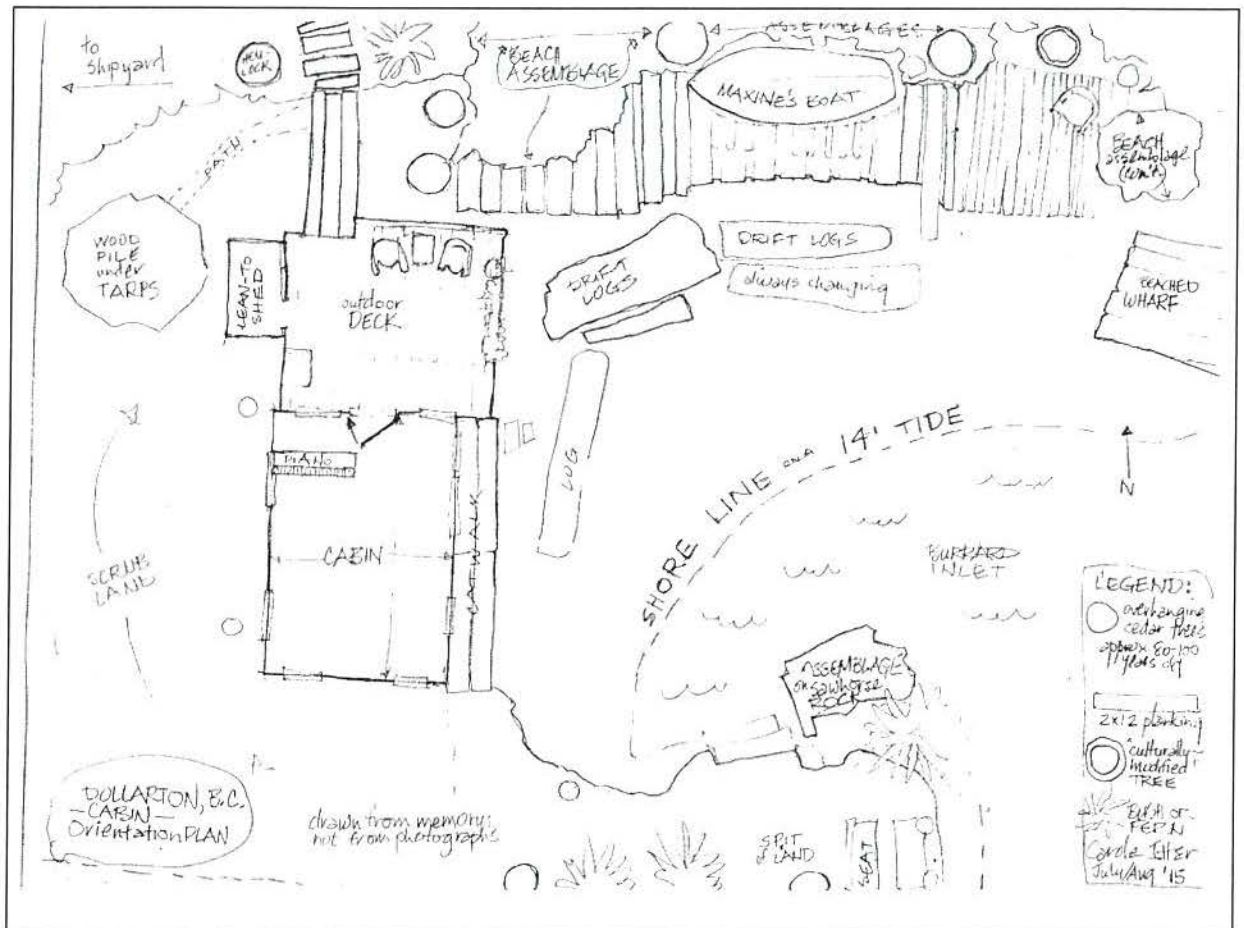 to
shipyard
HEM-
LOCK
BEACH
ASSEMBLAGE
ASSEMBLAGES
MAXINE'S BOAT
BEACH
assemblage
(con't.)
PATH
WOOD
PILE
under
TARPS
LEAN-TO
SHED
outdoor
DECK
DRIFT
LOGS
DRIFT LOGS
always changing
BEACHED
WHARF
PIANO
LOG
CABIN
CATWALK
SCRUB
LAND
SHORE LINE on a 14' TIDE
N
BURRARD
INLET
ASSEMBLAGE
on sawhorse
ROCK
LEGEND:
overhanging
cedar trees
approx 80-100
years old
2x12 planking
"culturally-
modified"
TREE
BUSH or
FERN
Carole Itter
July/Aug '15
DOLLARTON, B.C.
—CABIN—
Orientation PLAN
drawn from memory:
not from photographs
SPIT
of LAND
SEAT